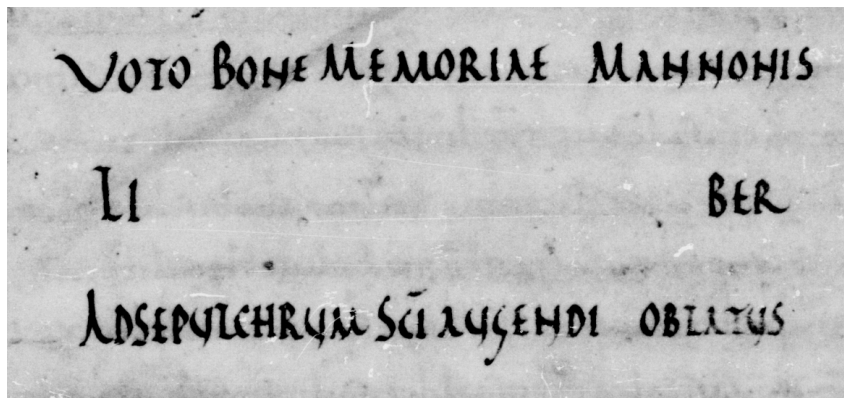 VOTO BONE MEMORIAE MANNONIS
LI BER
ADSEPULCHRUM SCI AUGENDI OBLATUS